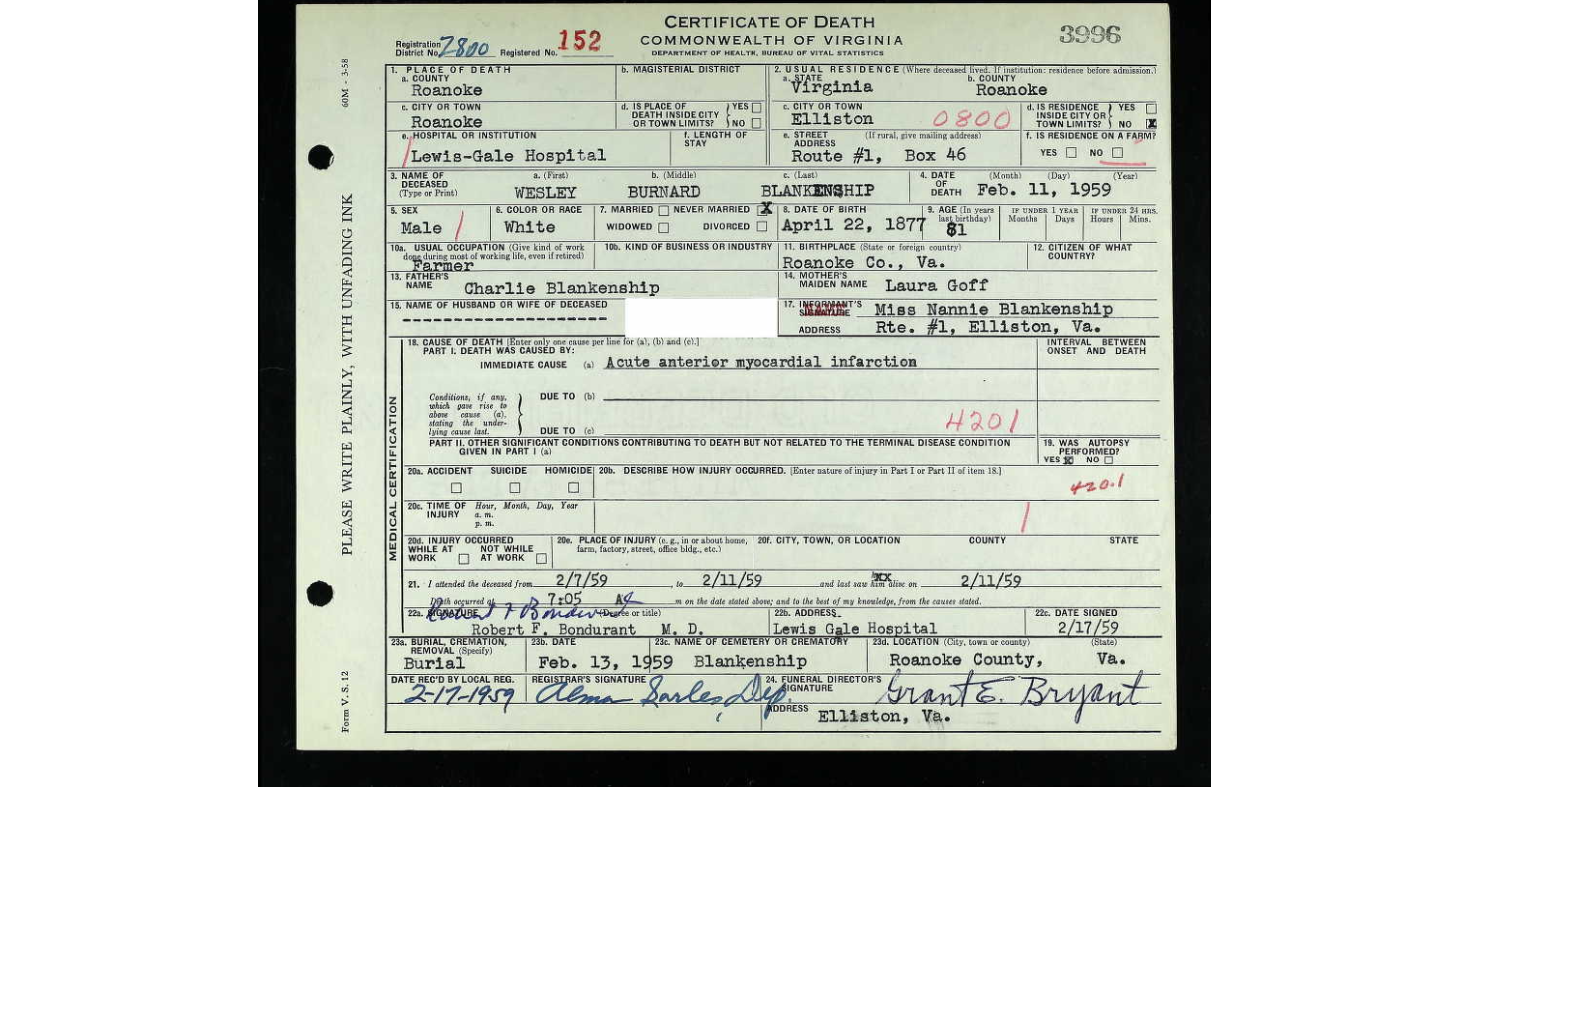 CERTIFICATE OF DEATH
COMMONWEALTH OF VIRGINIA
DEPARTMENT OF HEALTH, BUREAU OF VITAL STATISTICS
3996
Registration District No. 2800 Registered No. 152
60M - 3-58
PLEASE WRITE PLAINLY, WITH UNFADING INK
Form V. S. 12
1. PLACE OF DEATH
a. COUNTY
Roanoke
b. MAGISTERIAL DISTRICT
2. USUAL RESIDENCE (Where deceased lived. If institution: residence before admission.)
a. STATE
Virginia
b. COUNTY
Roanoke
c. CITY OR TOWN
Roanoke
d. IS PLACE OF DEATH INSIDE CITY OR TOWN LIMITS? YES NO
c. CITY OR TOWN
Elliston 0800
d. IS RESIDENCE INSIDE CITY OR TOWN LIMITS? YES NO X
e. HOSPITAL OR INSTITUTION
Lewis-Gale Hospital
f. LENGTH OF STAY
e. STREET ADDRESS (If rural, give mailing address)
Route #1, Box 46
f. IS RESIDENCE ON A FARM?
YES NO
3. NAME OF DECEASED (Type or Print)
a. (First) b. (Middle) c. (Last)
WESLEY BURNARD BLANKENSHIP
4. DATE OF DEATH (Month) (Day) (Year)
Feb. 11, 1959
5. SEX
Male
6. COLOR OR RACE
White
7. MARRIED NEVER MARRIED X
WIDOWED DIVORCED
8. DATE OF BIRTH
April 22, 1877
9. AGE (In years last birthday)
81
IF UNDER 1 YEAR
Months Days
IF UNDER 24 HRS.
Hours Mins.
10a. USUAL OCCUPATION (Give kind of work done during most of working life, even if retired)
Farmer
10b. KIND OF BUSINESS OR INDUSTRY
11. BIRTHPLACE (State or foreign country)
Roanoke Co., Va.
12. CITIZEN OF WHAT COUNTRY?
13. FATHER'S NAME
Charlie Blankenship
14. MOTHER'S MAIDEN NAME Laura Goff
15. NAME OF HUSBAND OR WIFE OF DECEASED
--------------------
17. INFORMANT'S SIGNATURE Miss Nannie Blankenship
ADDRESS Rte. #1, Elliston, Va.
MEDICAL CERTIFICATION
18. CAUSE OF DEATH [Enter only one cause per line for (a), (b) and (c).]
PART I. DEATH WAS CAUSED BY:
IMMEDIATE CAUSE (a) Acute anterior myocardial infarction
INTERVAL BETWEEN ONSET AND DEATH
Conditions, if any, which gave rise to above cause (a), stating the underlying cause last.
DUE TO (b)
DUE TO (c)
4201
PART II. OTHER SIGNIFICANT CONDITIONS CONTRIBUTING TO DEATH BUT NOT RELATED TO THE TERMINAL DISEASE CONDITION GIVEN IN PART I (a)
19. WAS AUTOPSY PERFORMED?
YES X NO
20a. ACCIDENT SUICIDE HOMICIDE
20b. DESCRIBE HOW INJURY OCCURRED. [Enter nature of injury in Part I or Part II of item 18.]
420.1
20c. TIME OF INJURY Hour, Month, Day, Year
a. m.
p. m.
20d. INJURY OCCURRED
WHILE AT WORK NOT WHILE AT WORK
20e. PLACE OF INJURY (e. g., in or about home, farm, factory, street, office bldg., etc.)
20f. CITY, TOWN, OR LOCATION COUNTY STATE
21. I attended the deceased from 2/7/59, to 2/11/59 and last saw him alive on 2/11/59
Death occurred at 7:05 A m on the date stated above; and to the best of my knowledge, from the causes stated.
22a. SIGNATURE (Degree or title)
Robert F Bondurant
Robert F. Bondurant M. D.
22b. ADDRESS
Lewis Gale Hospital
22c. DATE SIGNED
2/17/59
23a. BURIAL, CREMATION, REMOVAL (Specify)
Burial
23b. DATE
Feb. 13, 1959
23c. NAME OF CEMETERY OR CREMATORY
Blankenship
23d. LOCATION (City, town or county) (State)
Roanoke County, Va.
DATE REC'D BY LOCAL REG.
2-17-1959
REGISTRAR'S SIGNATURE
Alma Sarles, Dep.
24. FUNERAL DIRECTOR'S SIGNATURE Grant E. Bryant
ADDRESS
Elliston, Va.